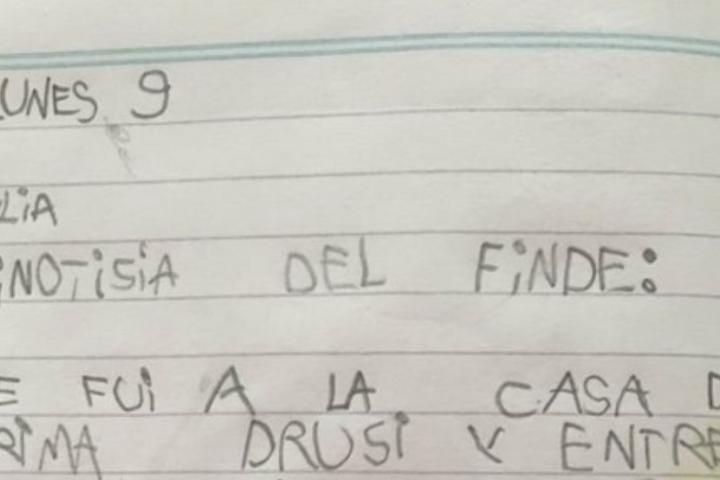 LUNES 9
LiA
NOTiSiA DEL FiNDE:
E FUi A LA CASA D
RiMA DRUSi Y ENTRE